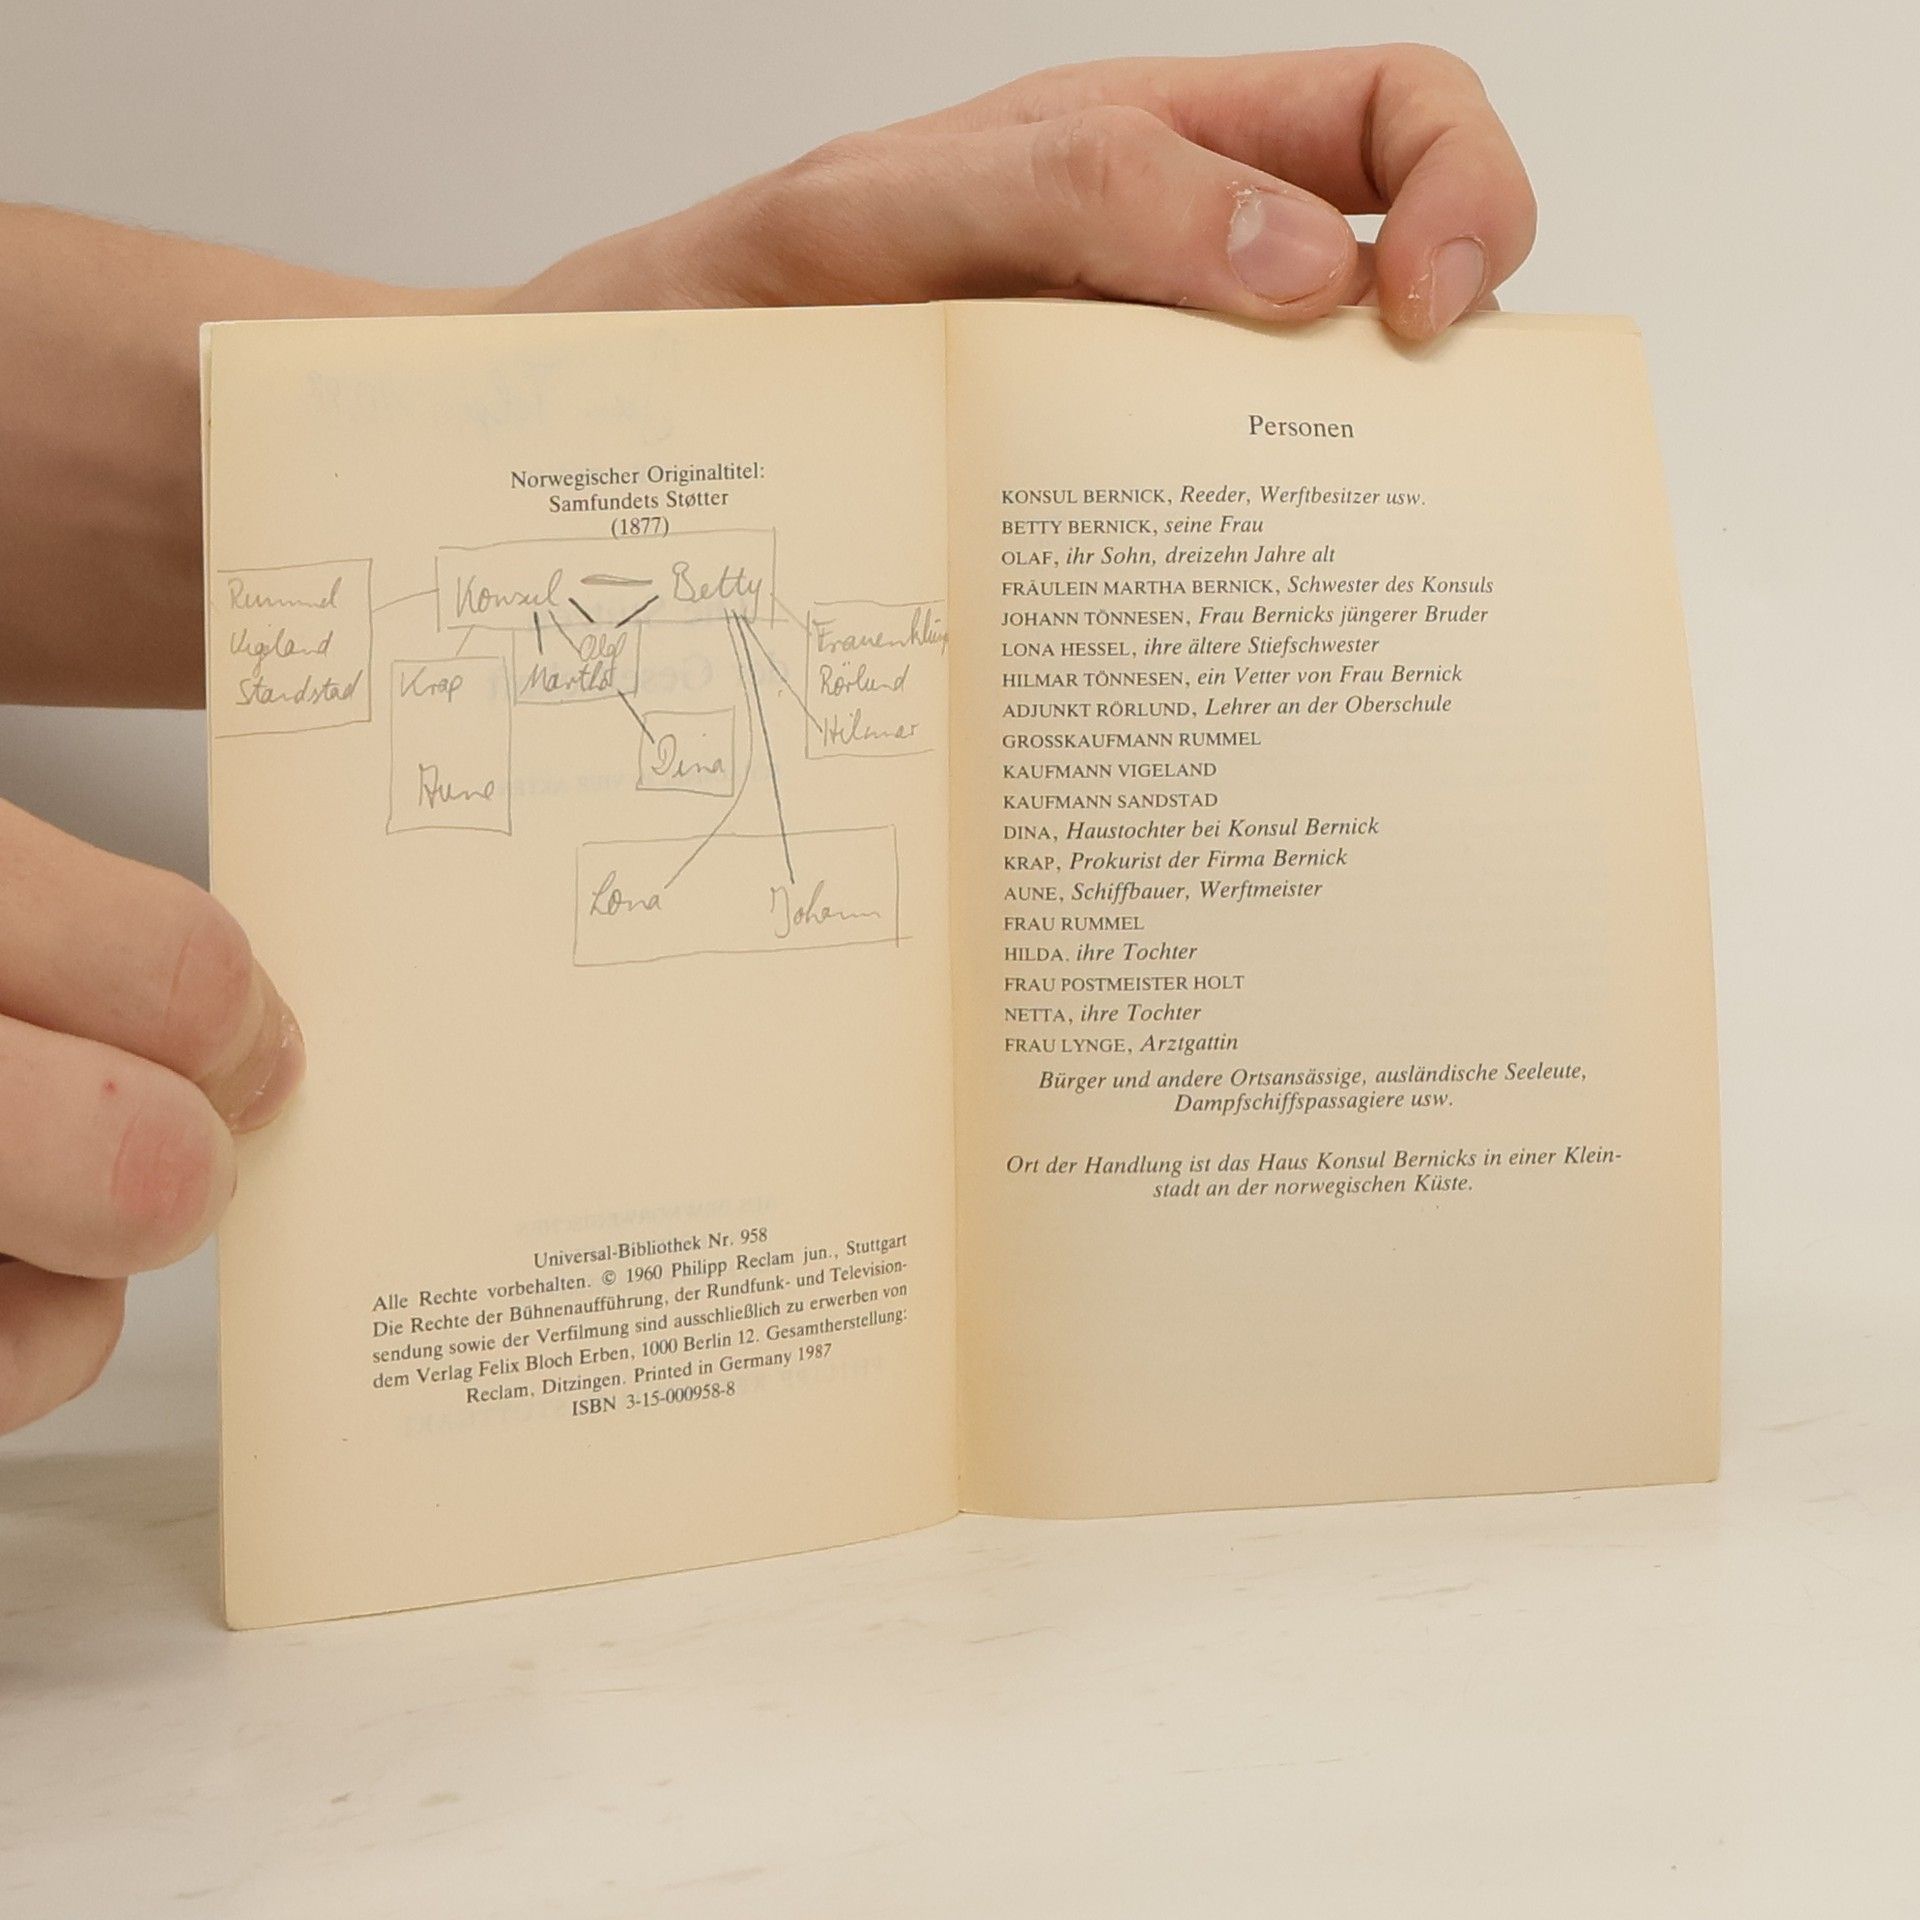 Norwegischer Originaltitel:
Samfundets Støtter
(1877)
Rummel
Vigeland
Standstad
Konsul
Betty
Olaf
Martha
Krap
Aune
Dina
Rörlund
Hilmar
Lona
Johann
Universal-Bibliothek Nr. 958
Alle Rechte vorbehalten. © 1960 Philipp Reclam jun., Stuttgart
Die Rechte der Bühnenaufführung, der Rundfunk- und Television-
sendung sowie der Verfilmung sind ausschließlich zu erwerben von
dem Verlag Felix Bloch Erben, 1000 Berlin 12. Gesamtherstellung:
Reclam, Ditzingen. Printed in Germany 1987
ISBN 3-15-000958-8
Personen
KONSUL BERNICK, Reeder, Werftbesitzer usw.
BETTY BERNICK, seine Frau
OLAF, ihr Sohn, dreizehn Jahre alt
FRÄULEIN MARTHA BERNICK, Schwester des Konsuls
JOHANN TÖNNESEN, Frau Bernicks jüngerer Bruder
LONA HESSEL, ihre ältere Stiefschwester
HILMAR TÖNNESEN, ein Vetter von Frau Bernick
ADJUNKT RÖRLUND, Lehrer an der Oberschule
GROSSKAUFMANN RUMMEL
KAUFMANN VIGELAND
KAUFMANN SANDSTAD
DINA, Haustochter bei Konsul Bernick
KRAP, Prokurist der Firma Bernick
AUNE, Schiffbauer, Werftmeister
FRAU RUMMEL
HILDA. ihre Tochter
FRAU POSTMEISTER HOLT
NETTA, ihre Tochter
FRAU LYNGE, Arztgattin
Bürger und andere Ortsansässige, ausländische Seeleute,
Dampfschiffspassagiere usw.
Ort der Handlung ist das Haus Konsul Bernicks in einer Klein-
stadt an der norwegischen Küste.